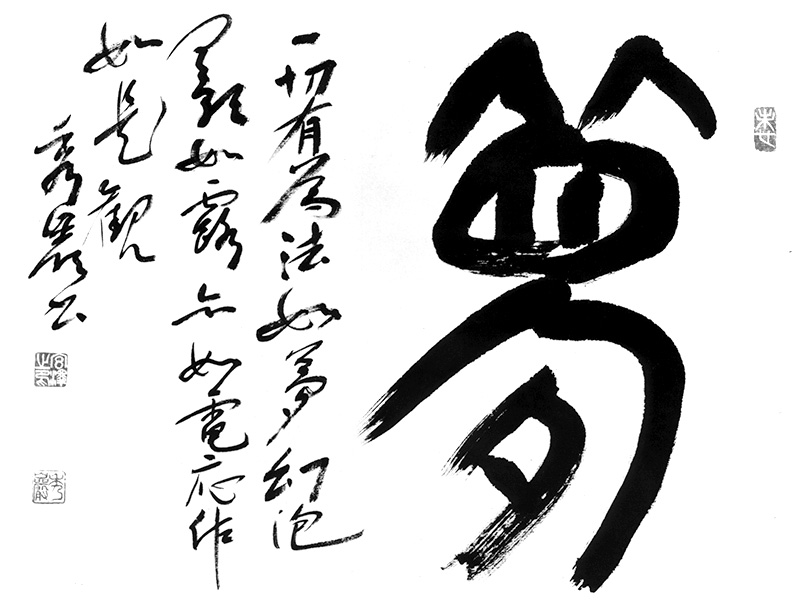 夢
一切有為法如夢幻泡
影如露亦如電应作
如是觀
秀巖書